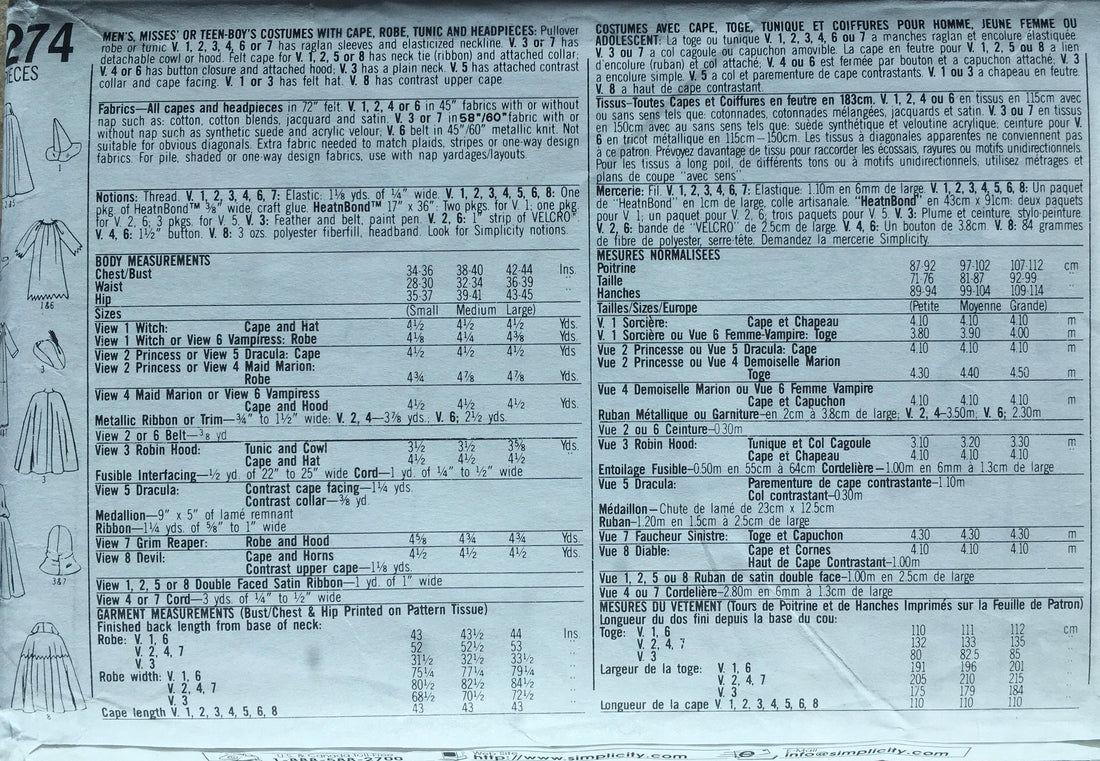 274
ECES
MEN'S, MISSES' OR TEEN-BOY'S COSTUMES WITH CAPE, ROBE, TUNIC AND HEADPIECES: Pullover
robe or tunic V. 1, 2, 3, 4, 6 or 7 has raglan sleeves and elasticized neckline. V. 3 or 7 has
detachable cowl or hood. Felt cape for V. 1, 2, 5 or 8 has neck tie (ribbon) and attached collar;
V. 4 or 6 has button closure and attached hood; V. 3 has a plain neck. V. 5 has attached contrast
collar and cape facing. V. 1 or 3 has felt hat. V. 8 has contrast upper cape.
Fabrics—All capes and headpieces in 72" felt. V. 1, 2, 4 or 6 in 45" fabrics with or without
nap such as: cotton, cotton blends, jacquard and satin. V. 3 or 7 in 58"/60" fabric with or
without nap such as synthetic suede and acrylic velour; V. 6 belt in 45"/60" metallic knit. Not
suitable for obvious diagonals. Extra fabric needed to match plaids, stripes or one-way design
fabrics. For pile, shaded or one-way design fabrics, use with nap yardages/layouts.
Notions: Thread. V. 1, 2, 3, 4, 6, 7: Elastic: 1⅛ yds. of ¼" wide. V. 1, 2, 3, 4, 5, 6, 8: One
pkg. of HeatnBond™ ⅜" wide, craft glue. HeatnBond™ 17" x 36": Two pkgs. for V. 1; one pkg.
for V. 2, 6; 3 pkgs. for V. 5. V. 3: Feather and belt, paint pen. V. 2, 6: 1" strip of VELCRO®
V. 4, 6: 1½" button. V. 8: 3 ozs. polyester fiberfill, headband. Look for Simplicity notions.
BODY MEASUREMENTS
Chest/Bust 34-36 38-40 42-44 Ins.
Waist 28-30 32-34 36-39 "
Hip 35-37 39-41 43-45 "
Sizes (Small Medium Large)
View 1 Witch: Cape and Hat 4½ 4½ 4½ Yds.
View 1 Witch or View 6 Vampiress: Robe 4⅛ 4¼ 4⅜ Yds.
View 2 Princess or View 5 Dracula: Cape 4½ 4½ 4½ Yds.
View 2 Princess or View 4 Maid Marion:
Robe 4¾ 4⅞ 4⅞ Yds.
View 4 Maid Marion or View 6 Vampiress
Cape and Hood 4½ 4½ 4½ Yds.
Metallic Ribbon or Trim—¾" to 1½" wide: V. 2, 4—3⅞ yds., V. 6; 2½ yds.
View 2 or 6 Belt—⅜ yd
View 3 Robin Hood: Tunic and Cowl 3½ 3½ 3⅝ Yds.
Cape and Hat 4½ 4½ 4½ "
Fusible Interfacing—½ yd. of 22" to 25" wide Cord—1 yd. of ¼" to ½" wide
View 5 Dracula: Contrast cape facing—1¼ yds.
Contrast collar—⅜ yd.
Medallion—9" x 5" of lamé remnant
Ribbon—1¼ yds. of ⅝" to 1" wide
View 7 Grim Reaper: Robe and Hood 4⅝ 4¾ 4¾ Yds.
View 8 Devil: Cape and Horns 4½ 4½ 4½ Yds.
Contrast upper cape—1⅛ yds.
View 1, 2, 5 or 8 Double Faced Satin Ribbon—1 yd. of 1" wide
View 4 or 7 Cord—3 yds. of ¼" to ½" wide
GARMENT MEASUREMENTS (Bust/Chest & Hip Printed on Pattern Tissue)
Finished back length from base of neck:
Robe: V. 1, 6 43 43½ 44 Ins.
V. 2, 4, 7 52 52½ 53 "
V. 3 31½ 32½ 33½ "
Robe width: V. 1, 6 75¼ 77¼ 79¼ "
V. 2, 4, 7 80½ 82½ 84½ "
V. 3 68½ 70½ 72½ "
Cape length V. 1, 2, 3, 4, 5, 6, 8 43 43 43 "
1
1&6
3
3
3&7
8
COSTUMES AVEC CAPE, TOGE, TUNIQUE ET COIFFURES POUR HOMME, JEUNE FEMME OU
ADOLESCENT: La toge ou tunique V. 1, 2, 3, 4, 6 ou 7 a manches raglan et encolure élastiquée.
V. 3 ou 7 a col cagoule ou capuchon amovible. La cape en feutre pour V. 1, 2, 5 ou 8 a lien
d'encolure (ruban) et col attaché; V. 4 ou 6 est fermée par bouton et a capuchon attaché; V. 3
a encolure simple. V. 5 a col et parementure de cape contrastants. V. 1 ou 3 a chapeau en feutre.
V. 8 a haut de cape contrastant.
Tissus-Toutes Capes et Coiffures en feutre en 183cm. V. 1, 2, 4 ou 6 en tissus en 115cm avec
ou sans sens tels que: cotonnades, cotonnades mélangées, jacquards et satin. V. 3 ou 7 en tissu
en 150cm avec au sans sens tels que: suède synthétique et veloutine acrylique; ceinture pour V.
6 en tricot métallique en 115cm—150cm. Les tissus à diagonales apparentes ne conviennent pas
à ce patron. Prévoyez davantage de tissu pour raccorder les écossais, rayures ou motifs unidirectionnels.
Pour les tissus à long poil, de différents tons ou à motifs unidirectionnels, utilisez métrages et
plans de coupe "avec sens".
Mercerie: Fil. V. 1, 2, 3, 4, 6, 7: Elastique: 1.10m en 6mm de large. V. 1, 2, 3, 4, 5, 6, 8: Un paquet
de "HeatnBond" en 1cm de large, colle artisanale. "HeatnBond" en 43cm x 91cm: deux paquets
pour V. 1; un paquet pour V. 2, 6; trois paquets pour V. 5. V. 3: Plume et ceinture, stylo-peinture.
V. 2, 6: bande de "VELCRO" de 2.5cm de large. V. 4, 6: Un bouton de 3.8cm. V. 8: 84 grammes
de fibre de polyester, serre-tête. Demandez la mercerie Simplicity.
MESURES NORMALISEES
Poitrine 87-92 97-102 107-112 cm
Taille 71-76 81-87 92-99 "
Hanches 89-94 99-104 109-114 "
Tailles/Sizes/Europe (Petite Moyenne Grande)
V. 1 Sorcière: Cape et Chapeau 4.10 4.10 4.10 m
V. 1 Sorcière ou Vue 6 Femme-Vampire: Toge 3.80 3.90 4.00 m
Vue 2 Princesse ou Vue 5 Dracula: Cape 4.10 4.10 4.10 m
Vue 2 Princesse ou Vue 4 Demoiselle Marion
Toge 4.30 4.40 4.50 m
Vue 4 Demoiselle Marion ou Vue 6 Femme Vampire
Cape et Capuchon 4.10 4.10 4.10 m
Ruban Métallique ou Garniture—en 2cm à 3.8cm de large; V. 2, 4—3.50m; V. 6; 2.30m
Vue 2 ou 6 Ceinture—0.30m
Vue 3 Robin Hood: Tunique et Col Cagoule 3.10 3.20 3.30 m
Cape et Chapeau 4.10 4.10 4.10 "
Entoilage Fusible—0.50m en 55cm à 64cm Cordelière—1.00m en 6mm à 1.3cm de large
Vue 5 Dracula: Parementure de cape contrastante—1.10m
Col contrastant—0.30m
Médaillon—Chute de lamé de 23cm x 12.5cm
Ruban—1.20m en 1.5cm à 2.5cm de large
Vue 7 Faucheur Sinistre: Toge et Capuchon 4.30 4.30 4.30 m
Vue 8 Diable: Cape et Cornes 4.10 4.10 4.10 m
Haut de Cape Contrastant—1.00m
Vue 1, 2, 5 ou 8 Ruban de satin double face—1.00m en 2.5cm de large
Vue 4 ou 7 Cordelière—2.80m en 6mm à 1.3cm de large
MESURES DU VETEMENT (Tours de Poitrine et de Hanches Imprimés sur la Feuille de Patron)
Longueur du dos fini depuis la base du cou:
Toge: V. 1, 6 110 111 112 cm
V. 2, 4, 7 132 133 135 "
V. 3 80 82.5 85 "
Largeur de la toge: V. 1, 6 191 196 201 "
V. 2, 4, 7 205 210 215 "
V. 3 175 179 184 "
Longueur de la cape V. 1, 2, 3, 4, 5, 6, 8 110 110 110 "
U.S. & Canada Toll-Free
1-888-588-2700
Web Site
http://www.simplicity.com
E-Mail
info@simplicity.com